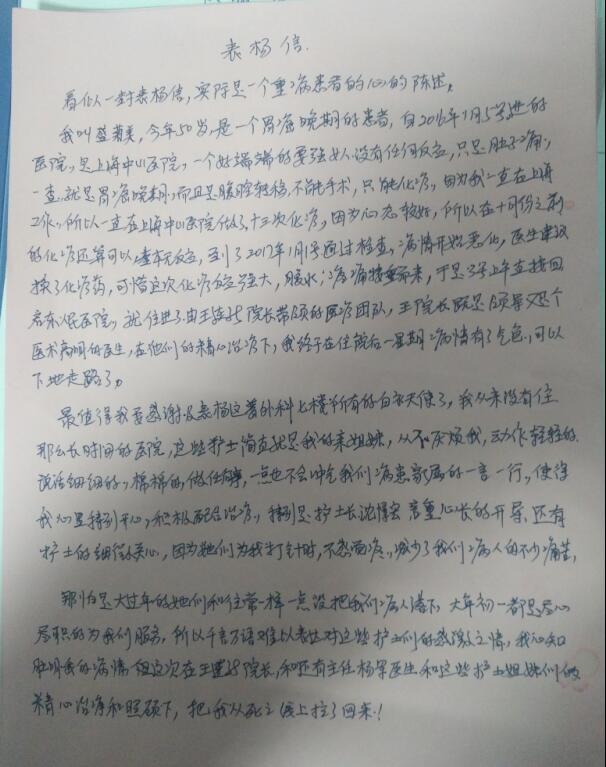 表杨信.
看似一封表杨信,实际是一个重病患者的心的陈述,
我叫盛菊美,今年50岁,是一个胃癌晚期的患者,自2016年1月5号进的
医院,是上海中山医院,一个好端端的要强女人没有任何反应,只是肚子痛,
一查就是胃癌晚期,而且是腹腔转移,不能手术,只能化疗,因为我一直在上海
工作,所以一直在上海中山医院做了十三次化疗,因为心态较好,所以在十月份之前
的化疗还算可以,毫无反应,到了2017年1月1号通过检查,病情开始恶化,医生建议
换了化疗药,可惜这次化疗反应强大,腹水,病痛接踵而来,于是3号上午直接回
启东人民医院,就住进了由王 院长带领的医疗团队,王院长既是领导又是个
医术高明的医生,在他们的精心治疗下,我终于在住院后一星期病情有了气色,可以
下地走路了。
最值得我要感谢及表杨这普外科七楼所有的白衣天使了,我从来没有住
那么长时间的医院,这些护士简直就是我的亲姐妹,从不厌烦我,动作轻轻的
说话细细的,棉棉的,做任何事,一点也不会冲气我们病患家属的一言一行,使得
我心里特别开心,积极配合治疗,特别是护士长沈 言重心长的开导,还有
护士的细微关心,因为她们为我打针时,不感到疼,减少了我们病人的不少痛苦,
那怕是大过年的她们和往常一样一点没把我们病人落下,大年初一都是尽心
尽职的为我们服务,所以千言万语难以表达对这些护士们的感激之情,我心知
肚明我的病情,但这次在王 院长,和还有主任杨军医生和这些护士姐妹们的
精心治疗和照顾下,把我从死亡线上拉了回来!